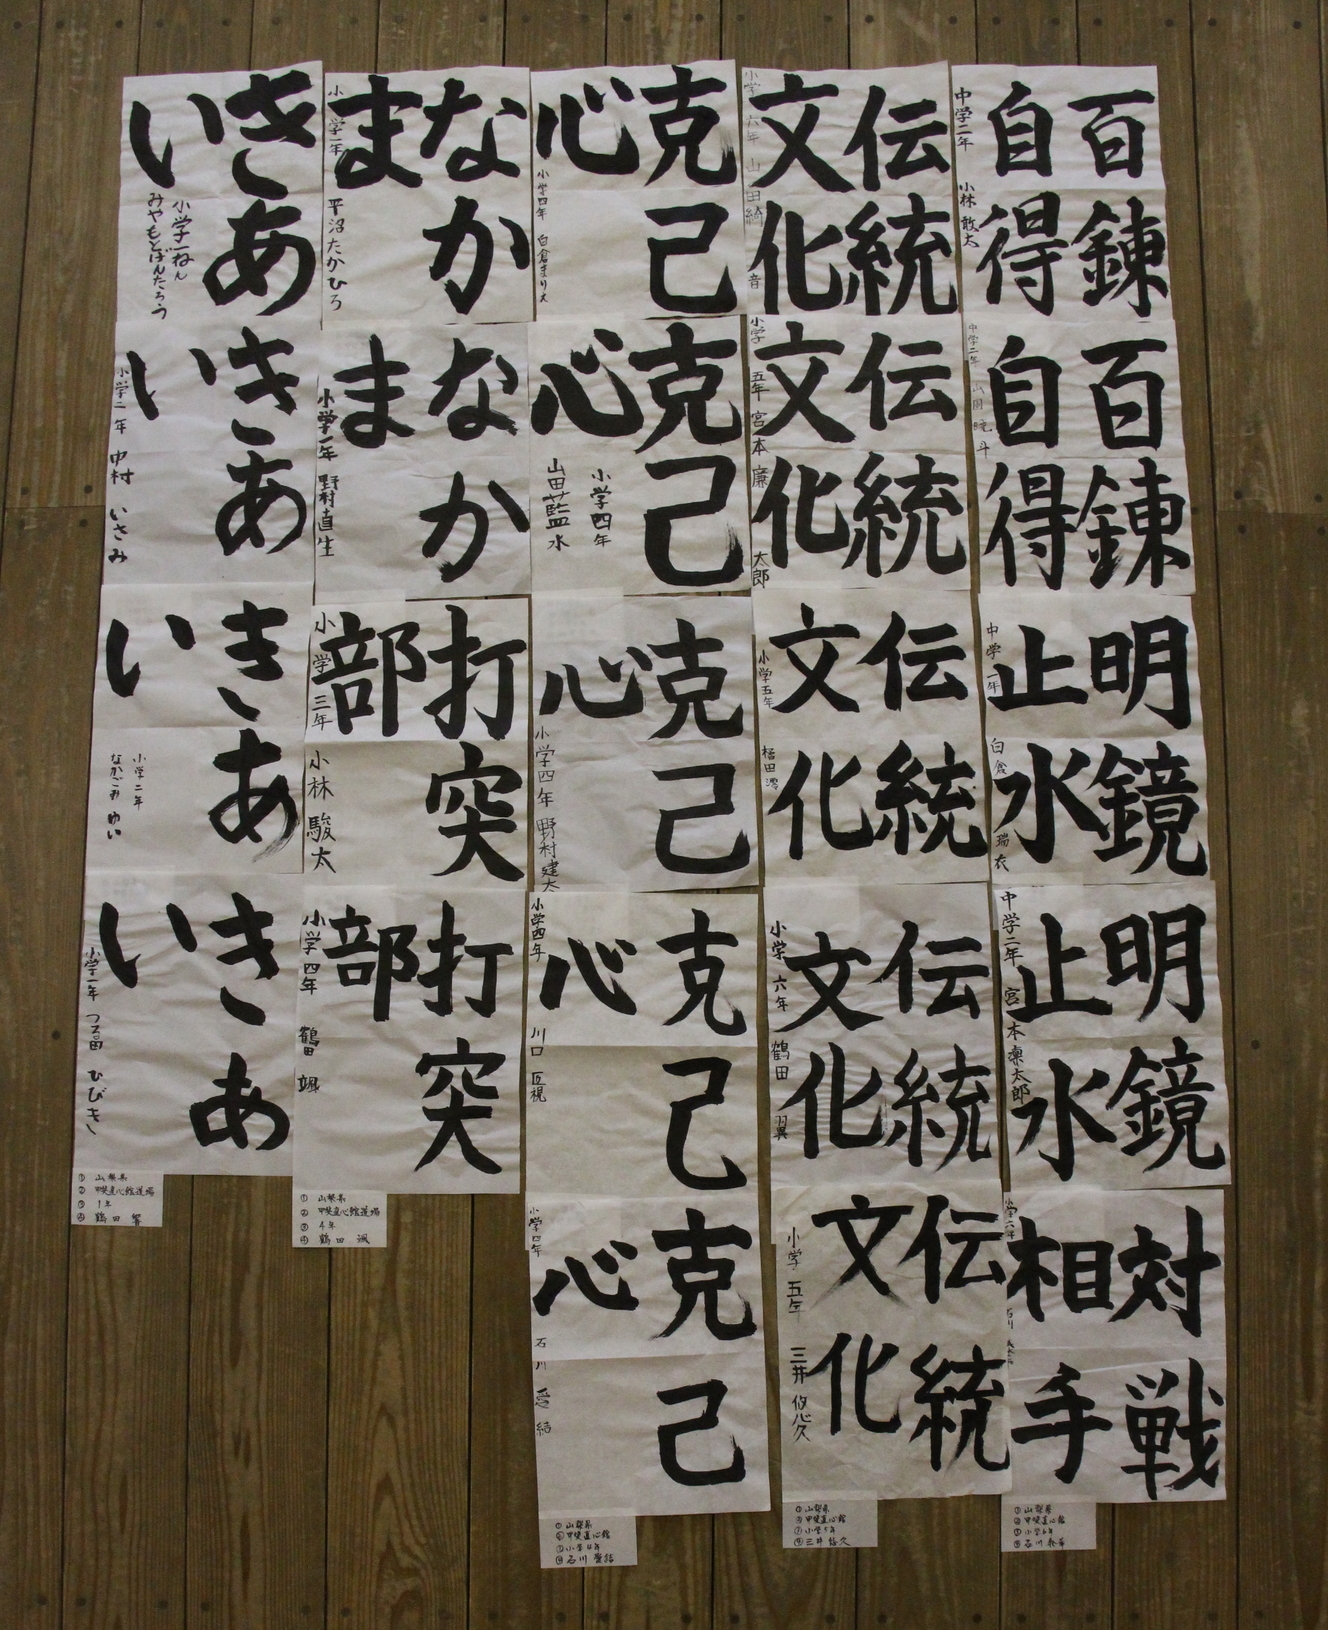 百錬
自得
中学二年
小林 敢太
百錬
自得
中学二年
明鏡
止水
中学一年
白倉 瑞衣
明鏡
止水
中学二年
宮本 凛太郎
対戦
相手
小学六年
石川
①山梨県
②甲斐直心館
③小学6年
伝統
文化
小学六年
伝統
文化
小学五年
宮本 廉太郎
伝統
文化
小学五年
伝統
文化
小学六年
鶴田 翼
伝統
文化
小学五年
三井 悠久
①山梨県
②甲斐直心館
③小学5年
④三井悠久
克己
心
小学四年
白倉まり大
克己
心
小学四年
山田藍水
克己
心
小学四年 野村建太
克己
心
小学四年
川口
克己
心
小学四年
石川 愛結
①山梨県
②甲斐直心館
③小学4年
④石川 愛結
なか
ま
小学一年
平沼たかひろ
なか
ま
小学一年
野村直生
打突
部
小学三年
小林 駿太
打突
部
小学四年
鶴田 颯
①山梨県
②甲斐直心館道場
③4年
④鶴田 颯
きあ
い
小学一ねん
みやもとばんたろう
きあ
い
小学二年
中村 いさみ
きあ
い
小学二年
なかごみ ゆい
きあ
い
小学一年
つる田 ひびき
①山梨県
②甲斐直心館道場
③1年
④鶴田 響